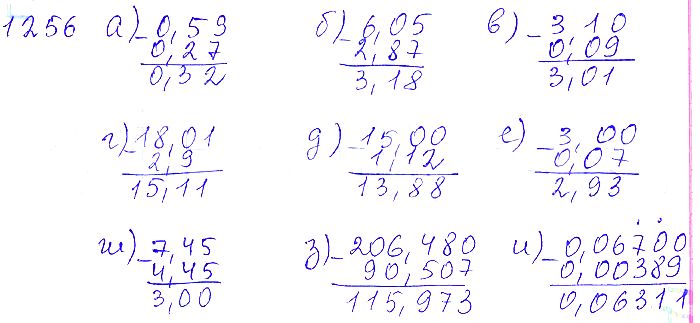 1256 а) -0,59 б) -6,05 в) -3,10
0,27 2,87 0,09
0,32 3,18 3,01
г) -18,01 д) -15,00 е) -3,00
2,9 1,12 0,07
15,11 13,88 2,93
ж) -7,45 з) -206,480 и) -0,06700
4,45 90,507 0,00389
3,00 115,973 0,06311